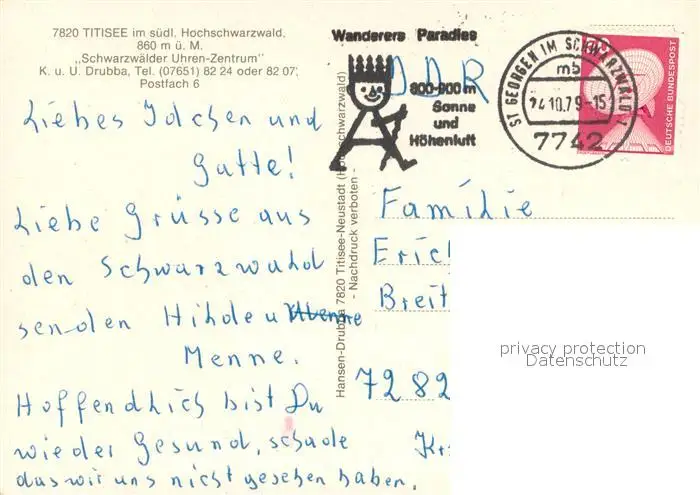 7820 TITISEE im südl. Hochschwarzwald,
860 m ü. M.
„Schwarzwälder Uhren-Zentrum"
K. u. U. Drubba, Tel. (07651) 82 24 oder 82 07,
Postfach 6
Liebes Idchen und
Gatte!
Liebe Grüsse aus
den Schwarzwald
senden Hilde u
Menne.
Hoffendlich bist Du
wieder Gesund, schade
das wir uns nicht gesehen haben.
Hansen-Drubba 7820 Titisee-Neustadt (Hochschwarzwald)
- Nachdruck verboten -
Wanderers Paradies
800-900 m
Sonne
und
Höhenluft
DDR
ST GEORGEN IM SCHWARZWALD 1
mb
24.10.79-15
7742
DEUTSCHE BUNDESPOST
Familie
Eric
Breit
7282
privacy protection
Datenschutz